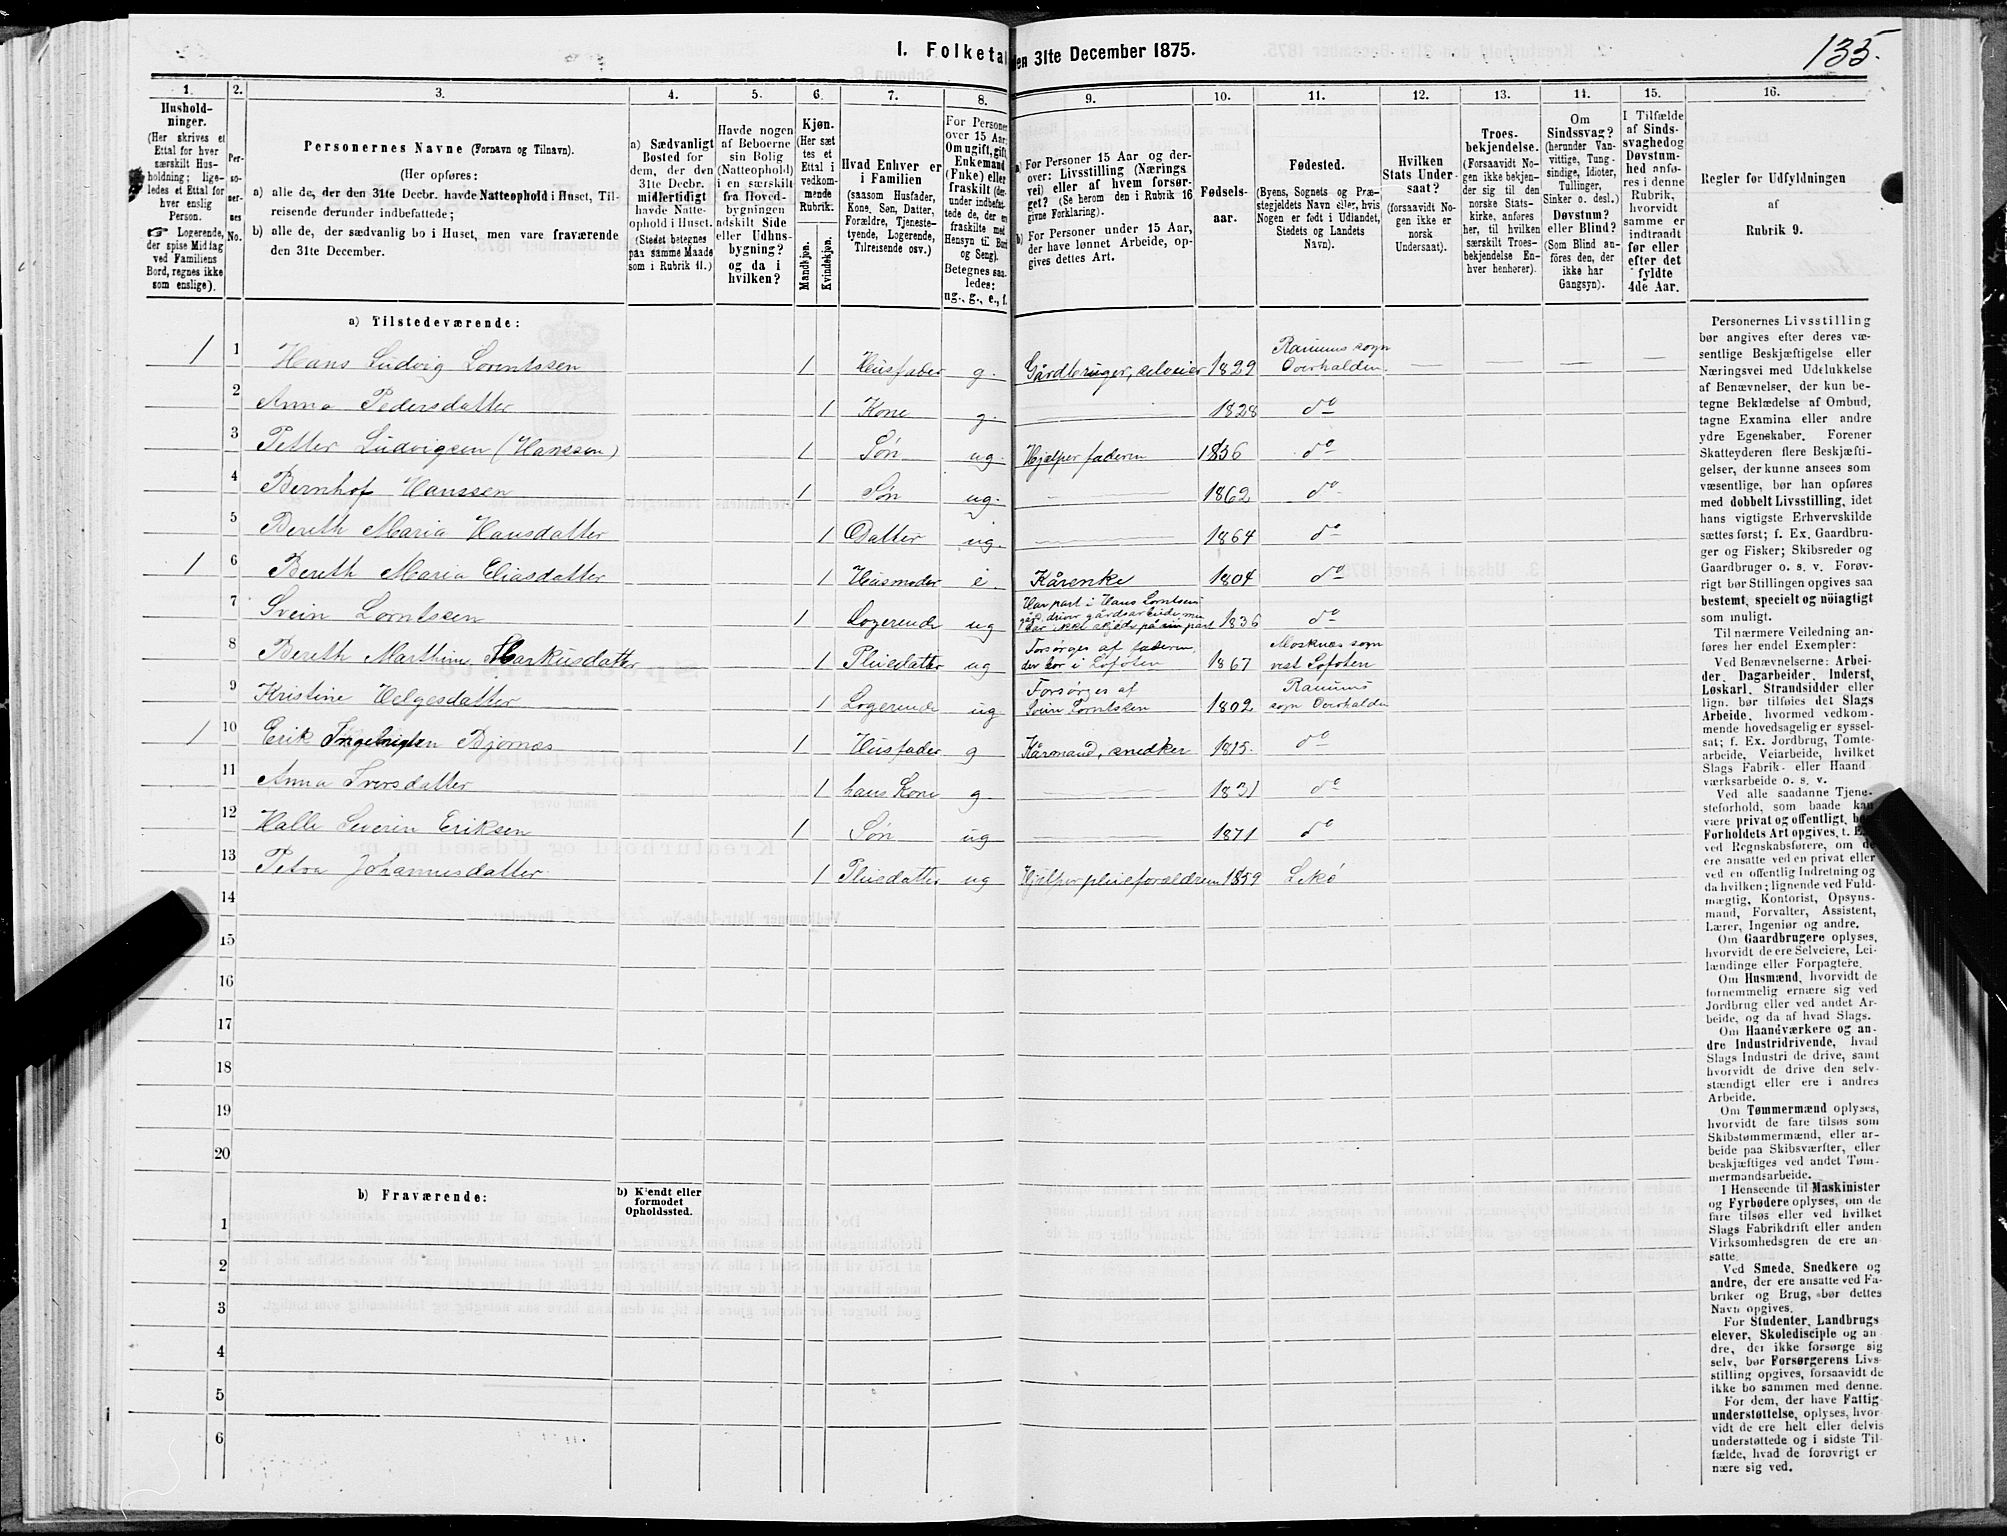 135.
1. Folketal den 31te December 1875.
1. 2. 3. 4. 5. 6. 7. 8. 9. 10. 11. 12. 13. 14. 15. 16.
Hushold-
ninger.
(Her skrives et
Ettal for hver
særskilt Hus-
holdning; lige-
ledes et Ettal for
hver enslig
Person.
☞ Logerende,
der spise Middag
ved Familiens
Bord, regnes ikke
som enslige).
Per-
so-
ner-
nes
No.
Personernes Navne (Fornavn og Tilnavn).
(Her opføres:
a) alle de, der den 31te Decbr. havde Natteophold i Huset, Til-
reisende derunder indbefattede;
b) alle de, der sædvanlig bo i Huset, men vare fraværende
den 31te December.
a) Sædvanligt
Bosted for
dem, der den
31te Decbr.
midlertidigt
havde Natte-
ophold i Huset.
(Stedet betegnes
paa samme Maade
som i Rubrik 11.)
Havde nogen
af Beboerne
sin Bolig
(Natteophold)
i en særskilt
fra Hoved-
bygningen
adskilt Side
eller Udhus-
bygning?
og da i
hvilken?
Kjøn.
(Her sæt
tes et
Ettal i
vedkom-
mende
Rubrik.
Mandkjøn.
Kvindekjøn.
Hvad Enhver er
i Familien
(saasom Husfader,
Kone, Søn, Datter,
Forældre, Tjeneste-
tyende, Logerende,
Tilreisende osv.)
For Personer
over 15 Aar:
Om ugift, gift,
Enkemand
(Enke) eller
fraskilt (der-
under indbefat-
tede de, der ere
fraskilte med
Hensyn til Bord
og Seng).
Betegnes saa-
ledes:
ug., g., e., f.
a) For Personer 15 Aar og der-
over: Livsstilling (Nærings
vei) eller af hvem forsør-
get? (Se herom den i Rubrik 16
givne Forklaring).
b) For Personer under 15 Aar,
der have lønnet Arbeide, op-
gives dettes Art.
Fødsels-
aar.
Fødested.
(Byens, Sognets og Præ-
stegjeldets Navn eller, hvis
Nogen er født i Udlandet,
Stedets og Landets
Navn).
Hvilken
Stats Under-
saat?
(forsaavidt No-
gen ikke er
norsk
Undersaat).
Troes-
bekjendelse.
(Forsaavidt No-
gen ikke bekjen-
der sig til den
norske Stats-
kirke, anføres
her, til hvilken
særskilt Troes-
bekjendelse En-
hver henhører).
Om
Sindssvag?
(herunder Van-
vittige, Tung-
sindige, Idioter,
Tullinger,
Sinker o. desl.)
Døvstum?
eller Blind?
(Som Blind an-
føres den, der
ikke har
Gangsyn).
I Tilfælde
af Sinds-
svaghedog
Døvstum-
hed anfø-
res i denne
Rubrik,
hvorvidt
samme er
indtraadt
før eller
efter det
fyldte
4de Aar.
Regler før Udfyldningen
af
Rubrik 9.
a) Tilstedeværende:
1 1 Hans Ludvig Lorentssen 1 Husfader g. Gårdbruger, selveier 1829 Ranums sogn Overhalden.
2 Anna Pedersdatter 1 Kone g. 1828 do
3 Petter Ludvigsen (Hanssen) 1 Søn ug. Hjælper faderen 1856 do
4 Bernhof Hanssen 1 Søn ug. 1862 do
5 Bereth Maria Hansdatter 1 Datter ug. 1864 do
1 6 Bereth Maria Eliasdatter 1 Husmoder e. Kårenke 1804 do
7 Svein Lorntssen 1 Logerende ug Har part i Hans Lorntsens gård, driver gårdsarbeide, men har ikke skjøde på sin part 1836 do
8 Bereth Marthine Markusdatter 1 Pleiedatter ug Forsørges af faderen, der bor i Lofoten 1867 Mosknæs sogn vest Lofoten
9 Kristine Helgesdatter 1 Logerende ug Forsørges af Svein Lorntssen 1802 Ranums sogn Overhalden
1 10 Erik Ingebrigtsen Bjørnæs 1 Husfader g Kårmand, snedker 1815. do
11 Anna Iversdatter 1 hans Kone g 1831 do
12 Halle Severin Eriksen 1 Søn ug 1871 do
13 Petra Johannesdatter 1 Pleiedatter ug Hjælper pleieforældrene 1859 Lekø
14
15
16
17
18
19
20
b) Fraværende:
b) Kjendt eller
formodet
Opholdssted.
1
2
3
4
5
6
Personernes Livsstilling
bør angives efter deres væ-
sentlige Beskjæftigelse eller
Næringsvei med Udelukkelse
af Benævnelser, der kun be-
tegne Beklædelse af Ombud,
tagne Examina eller andre
ydre Egenskaber. Forener
Skatteyderen flere Beskjæfti-
gelser, der kunne ansees som
væsentlige, bør han opføres
med dobbelt Livsstilling, idet
hans vigtigste Erhvervskilde
sættes først; f. Ex. Gaardbru-
ger og Fisker; Skibsreder og
Gaardbruger o. s. v. Forøv-
rigt bør Stillingen opgives saa
bestemt, specielt og nöiagtigt
som muligt.
Til nærmere Veiledning an-
føres her endel Exempler:
Ved Benævnelserne: Arbei-
der, Dagarbeider, Inderst,
Løskarl, Strandsidder eller
lign. bør tilføies det Slags
Arbeide, hvormed vedkom-
mende hovedsagelig er syssel-
sat; f. Ex. Jordbrug, Tomte-
arbeide, Veiarbeide, hvilket
Slags Fabrik- eller Haand
værksarbeide o. s. v.
Ved alle saadanne Tjene-
steforhold, som baade kan
være privat og offentligt, bør
Forholdets Art opgives, t. Ex.
ved Regnskabsførere, om de
ere ansatte ved en privat eller
ved en offentlig Indretning og
da hvilken; lignende ved Fuld-
mægtig, Kontorist, Opsyns-
mand, Forvalter, Assistent,
Lærer, Ingeniør og andre.
Om Gaardbrugere oplyses,
hvorvidt de ere Selveiere, Lei-
lændinge eller Forpagtere.
Om Husmænd, hvorvidt de
fornemmelig ernære sig ved
Jordbrug eller ved andet Ar-
beide, og da af hvad Slags.
Om Haandværkere og an-
dre Industridrivende, hvad
Slags Industri de drive, samt
hvorvidt de drive den selv-
stændigt eller ere i andres
Arbeide.
Om Tømmermænd oplyses,
hvorvidt de fare tilsøs som
Skibstømmermænd, eller ar-
beide paa Skibsværfter, eller
beskjæftiges ved andet Tøm-
mermandsarbeide.
I Henseende til Maskinister
og Fyrbødere oplyses, om de
fare tilsøs eller ved hvilket
Slags Fabrikdrift eller anden
Virksomhedsgren de ere an-
satte.
Ved Smede, Snedkere og
andre, der ere ansatte ved Fa-
briker og Brug, bør dettes
Navn opgives.
For Studenter, Landbrugs
elever, Skoledisciple og an
dre, der ikke forsørge sig
selv, bør Forsørgerens Livs-
stilling opgives, forsaavidt de
ikke bo sammen med denne.
For dem, der have Fattig
understøttelse, oplyses, hvor-
vidt de ere helt eller delvis
understøttede og i sidste Til-
fælde, hvad de forøvrigt er
nære sig ved.